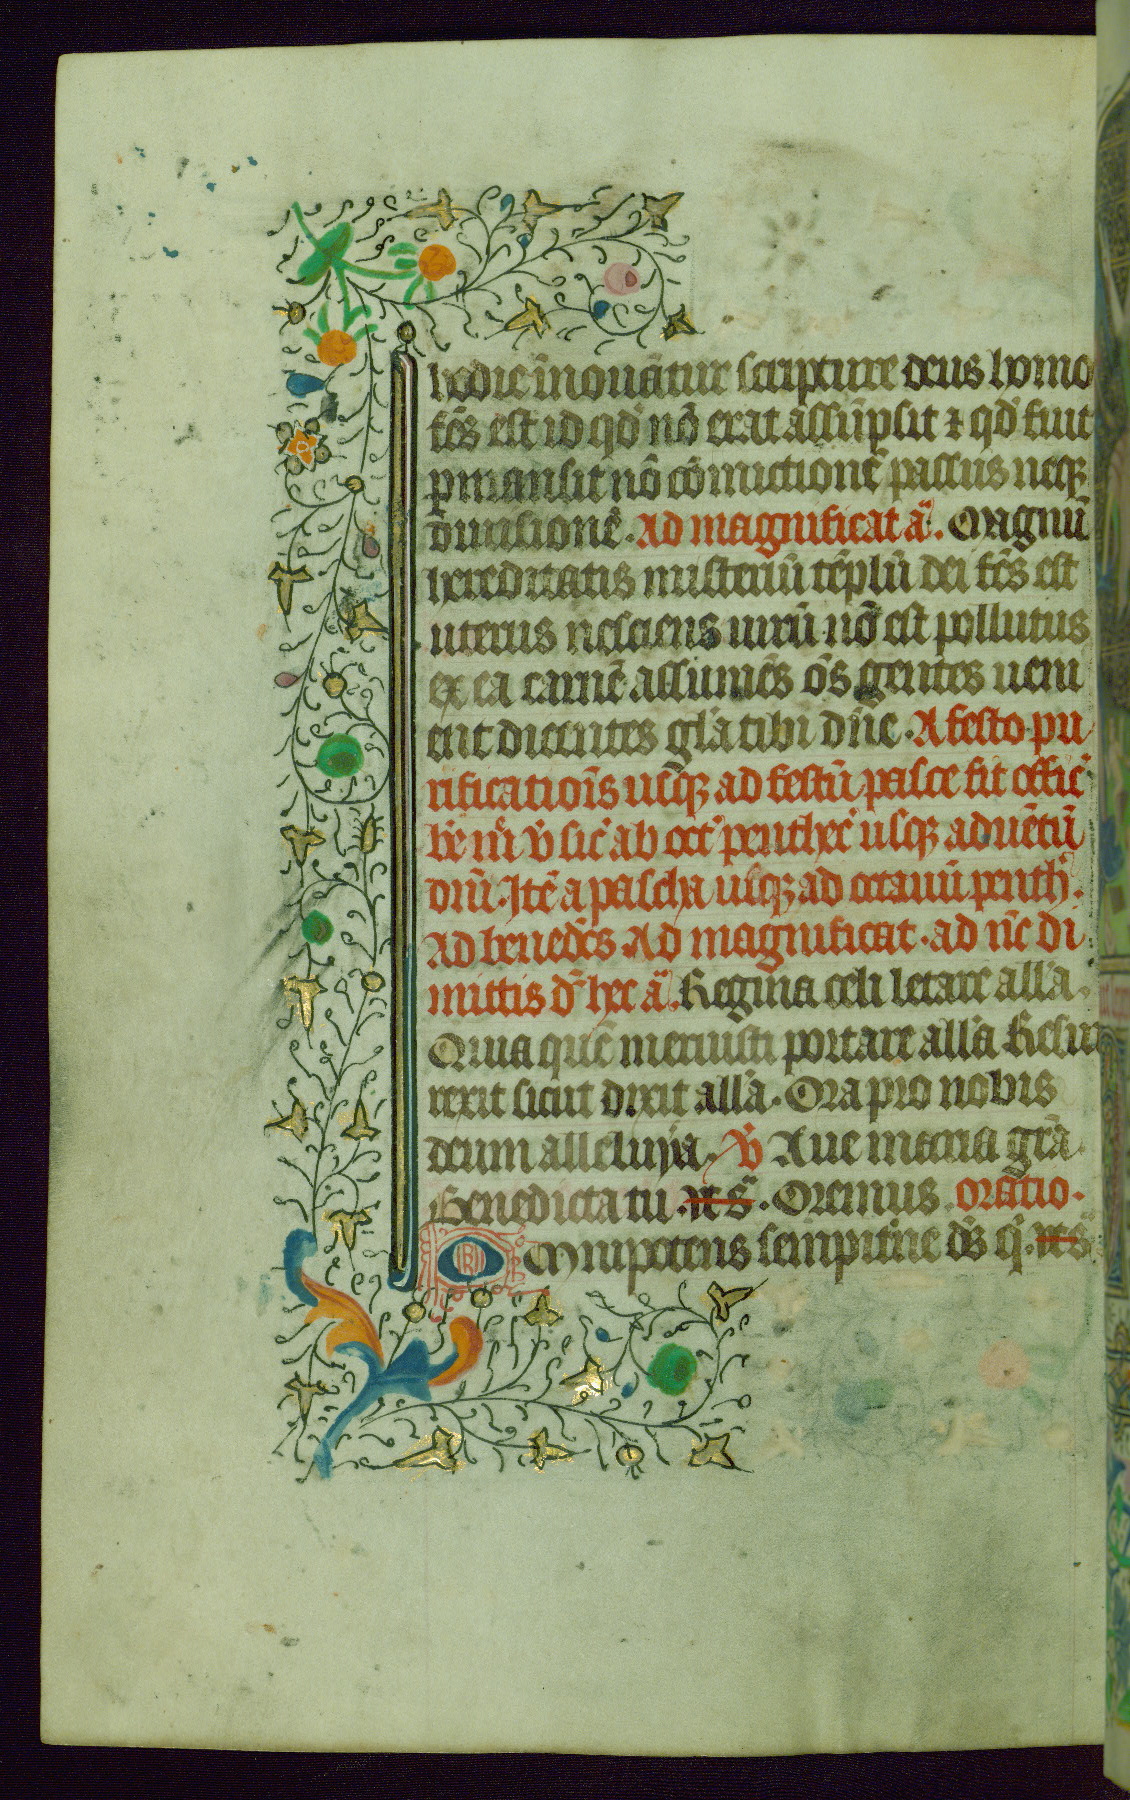 hodie in̄ouātur scripture deus homo
fc̄s est id qd̄ nō erat assūpsit ⁊ qd̄ fuit
ꝑmansit nō cōmictionē passus neqꝫ
diuisionē. Ad magnificat ā. Magnū
hereditatis misteriū tēplū dei fc̄s est
uterus nesciens uirū nō est pollutus
ex ea carnē assumēs om̄s gentes ueni
ent dicentes gl̄a tibi dn̄e. A festo pu
rificatiōis usqꝫ ad festū pasce fit offic̄
bē m̄ v̄ sic̄ ab oct̄ penthec̄ usqꝫ aduētū
dn̄i. Itē a pascha usqꝫ ad octauū penth̄.
Ad benedc̄s. Ad magnificat. ad nc̄ di
mittis d̄r hec ā. Regina celi letare all̄a.
Quia quē meruisti portare all̄a Resur
rexit sicut dixit all̄a. Ora pro nobis
deum alleluya. v̄ Aue maria grā.
Benedicta tu. ut s̄. Oremus. oratio.
Omnipotens sempit̄ne ds̄ q̄. ut s̄